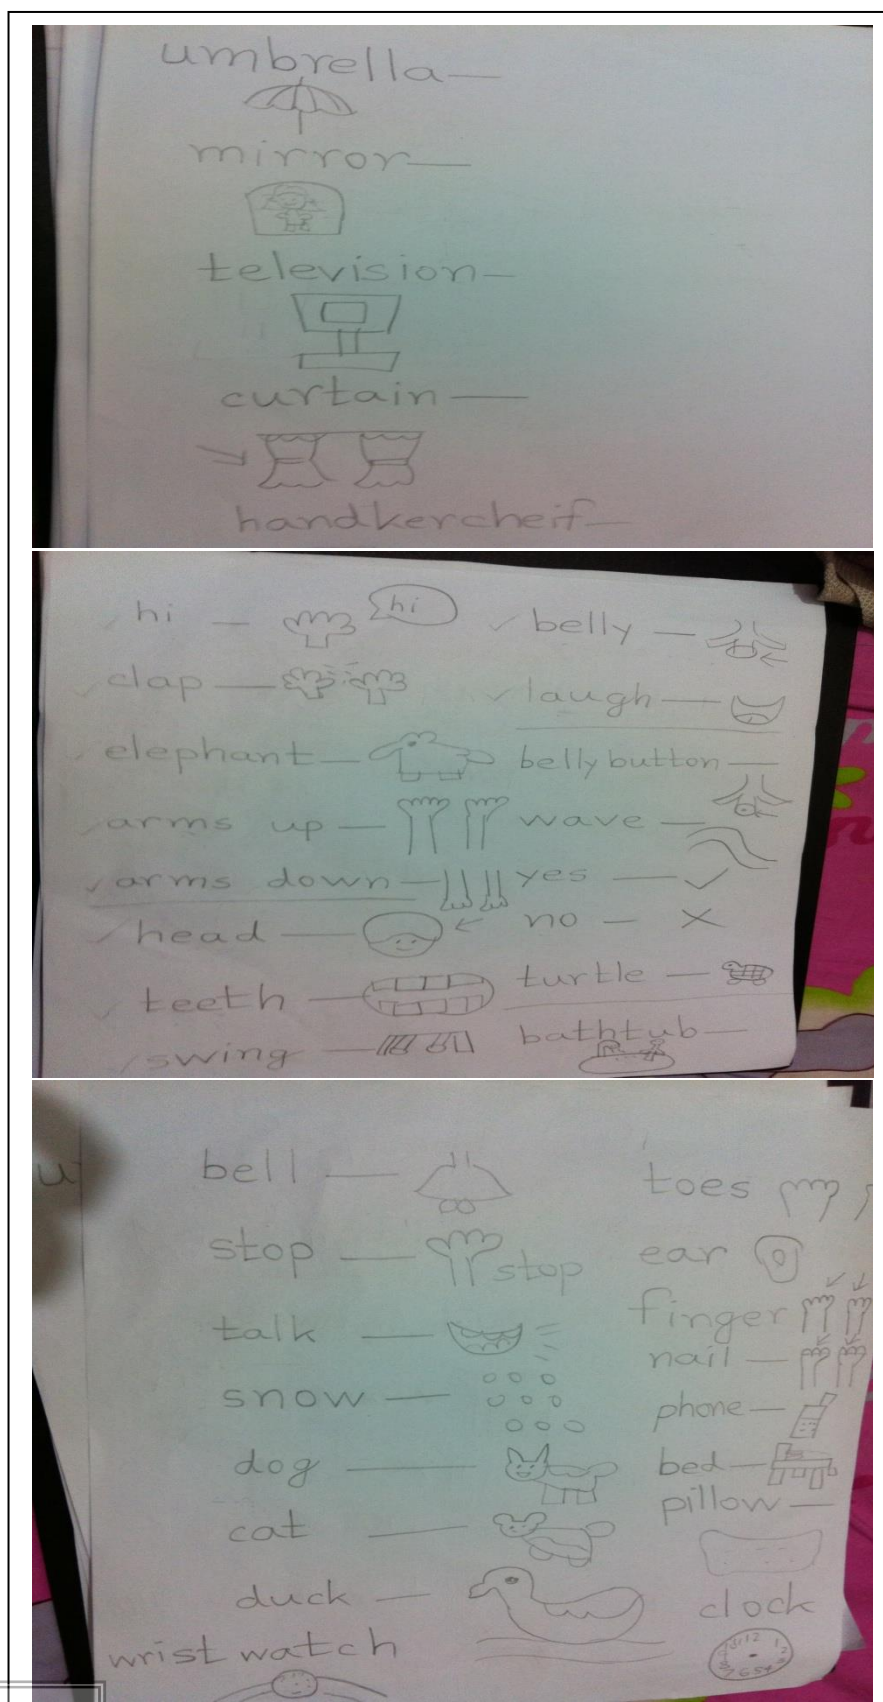 umbrella —
mirror —
television —
curtain —
handkercheif —
hi — hi
clap —
elephant —
arms up —
arms down —
head —
teeth —
swing —
belly —
laugh —
belly button —
wave —
yes —
no —
turtle —
bathtub —
bell —
stop — stop
talk —
snow —
dog —
cat —
duck —
wrist watch
toes
ear
finger
nail —
phone —
bed —
pillow —
clock